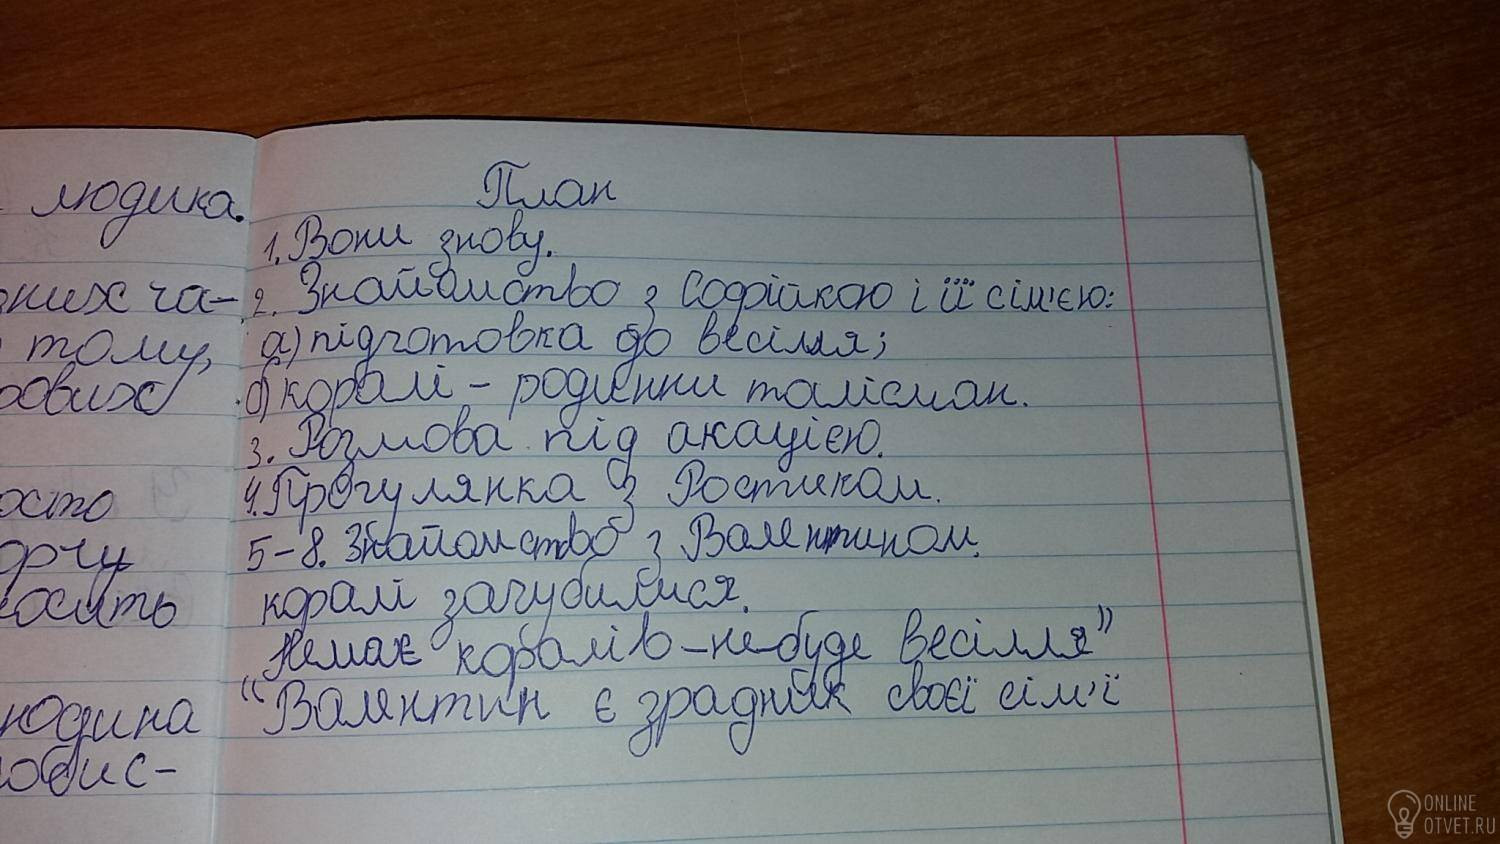 людика.
них ча-
тому,
рових
осто
орчу
носить
людина
обис-
План
1. Вони знову.
2. Знайомство з Софійкою і її сім'єю:
а) підготовка до весілля;
б) коралі - родинни талісман.
3. Розмова під акацією.
4. Прогулянка з Ростиком.
5-8. Знайомство з Валентином.
коралі загубилися.
Немає коралів - не буде весілля"
"Валентин є зрадник своєї сім'ї
ONLINE
OTVET.RU